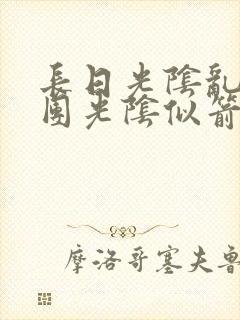 長日光陰亂
團光陰似箭
摩洛哥塞夫魯